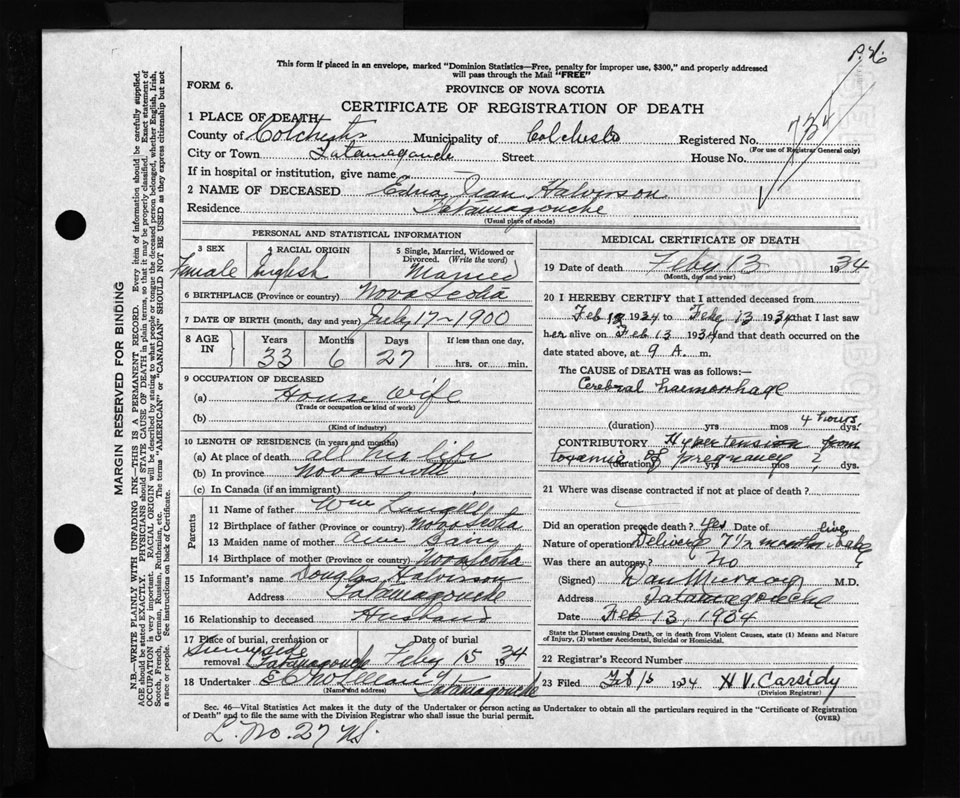 P.H.
This form if placed in an envelope, marked "Dominion Statistics—Free, penalty for improper use, $300," and properly addressed
will pass through the Mail "FREE"
FORM 6.
PROVINCE OF NOVA SCOTIA
CERTIFICATE OF REGISTRATION OF DEATH
1 PLACE OF DEATH
County of Colchester Municipality of Colchester Registered No. 734
(For use of Registrar General only)
City or Town Tatamagouche Street House No.
If in hospital or institution, give name
2 NAME OF DECEASED Edna Jean Halverson
Residence Tatamagouche
(Usual place of abode)
MARGIN RESERVED FOR BINDING
N.B.—WRITE PLAINLY WITH UNFADING INK—THIS IS A PERMANENT RECORD. Every item of information should be carefully supplied.
AGE should be stated EXACTLY. PHYSICIANS should STATE CAUSE OF DEATH in plain terms, so that it may be properly classified. Exact statement of
OCCUPATION is very important. RACIAL ORIGIN will be described by stating to what people or tongue the deceased person belonged, whether English, Irish,
Scotch, French, German, Russian, Ruthenian, etc. The terms "AMERICAN" or "CANADIAN" SHOULD NOT BE USED as they express citizenship but not
a race or people. See instructions on back of Certificate.
PERSONAL AND STATISTICAL INFORMATION
3 SEX 4 RACIAL ORIGIN 5 Single, Married, Widowed or
Divorced. (Write the word)
Female English Married
6 BIRTHPLACE (Province or country) Nova Scotia
7 DATE OF BIRTH (month, day and year) July 17 - 1900
8 AGE IN Years Months Days If less than one day,
33 6 27 hrs. or min.
9 OCCUPATION OF DECEASED
(a) House Wife
(Trade or occupation or kind of work)
(b)
(Kind of industry)
10 LENGTH OF RESIDENCE (in years and months)
(a) At place of death all her life
(b) In province Nova Scotia
(c) In Canada (if an immigrant)
Parents
11 Name of father Wm
12 Birthplace of father (Province or country) Nova Scotia
13 Maiden name of mother
14 Birthplace of mother (Province or country) Nova Scotia
15 Informant's name Douglas Halverson
Address Tatamagouche
16 Relationship to deceased Husband
17 Place of burial, cremation or Date of burial
Sunnyside
removal Tatamagouche Feby 15 1934
18 Undertaker McLellan Tatamagouche
(Name and address)
MEDICAL CERTIFICATE OF DEATH
19 Date of death Feby 13 1934
(Month, day and year)
20 I HEREBY CERTIFY that I attended deceased from
Feb 13 1934 to Feby 13 1934 that I last saw
her alive on Feb 13 1934 and that death occurred on the
date stated above, at 9 A. m.
The CAUSE of DEATH was as follows:—
Cerebral haemorrhage
4 hours
(duration) yrs mos dys.
CONTRIBUTORY Hypertension from
toxamia of pregnancy ?
(duration) yrs mos dys.
21 Where was disease contracted if not at place of death?
Did an operation precede death? Yes Date of
Nature of operation Delivery 7 1/2 months
Was there an autopsy? No
(Signed) Dan Murray M.D.
Address Tatamagouche
Date Feb 13, 1934
State the Disease causing Death, or in death from Violent Causes, state (1) Means and Nature
of Injury, (2) whether Accidental, Suicidal or Homicidal.
22 Registrar's Record Number
23 Filed Feb 1934 H V. Cassidy
(Division Registrar)
Sec. 46—Vital Statistics Act makes it the duty of the Undertaker or person acting as Undertaker to obtain all the particulars required in the "Certificate of Registration
of Death" and to file the same with the Division Registrar who shall issue the burial permit. (OVER)
L. No. 27 N.S.